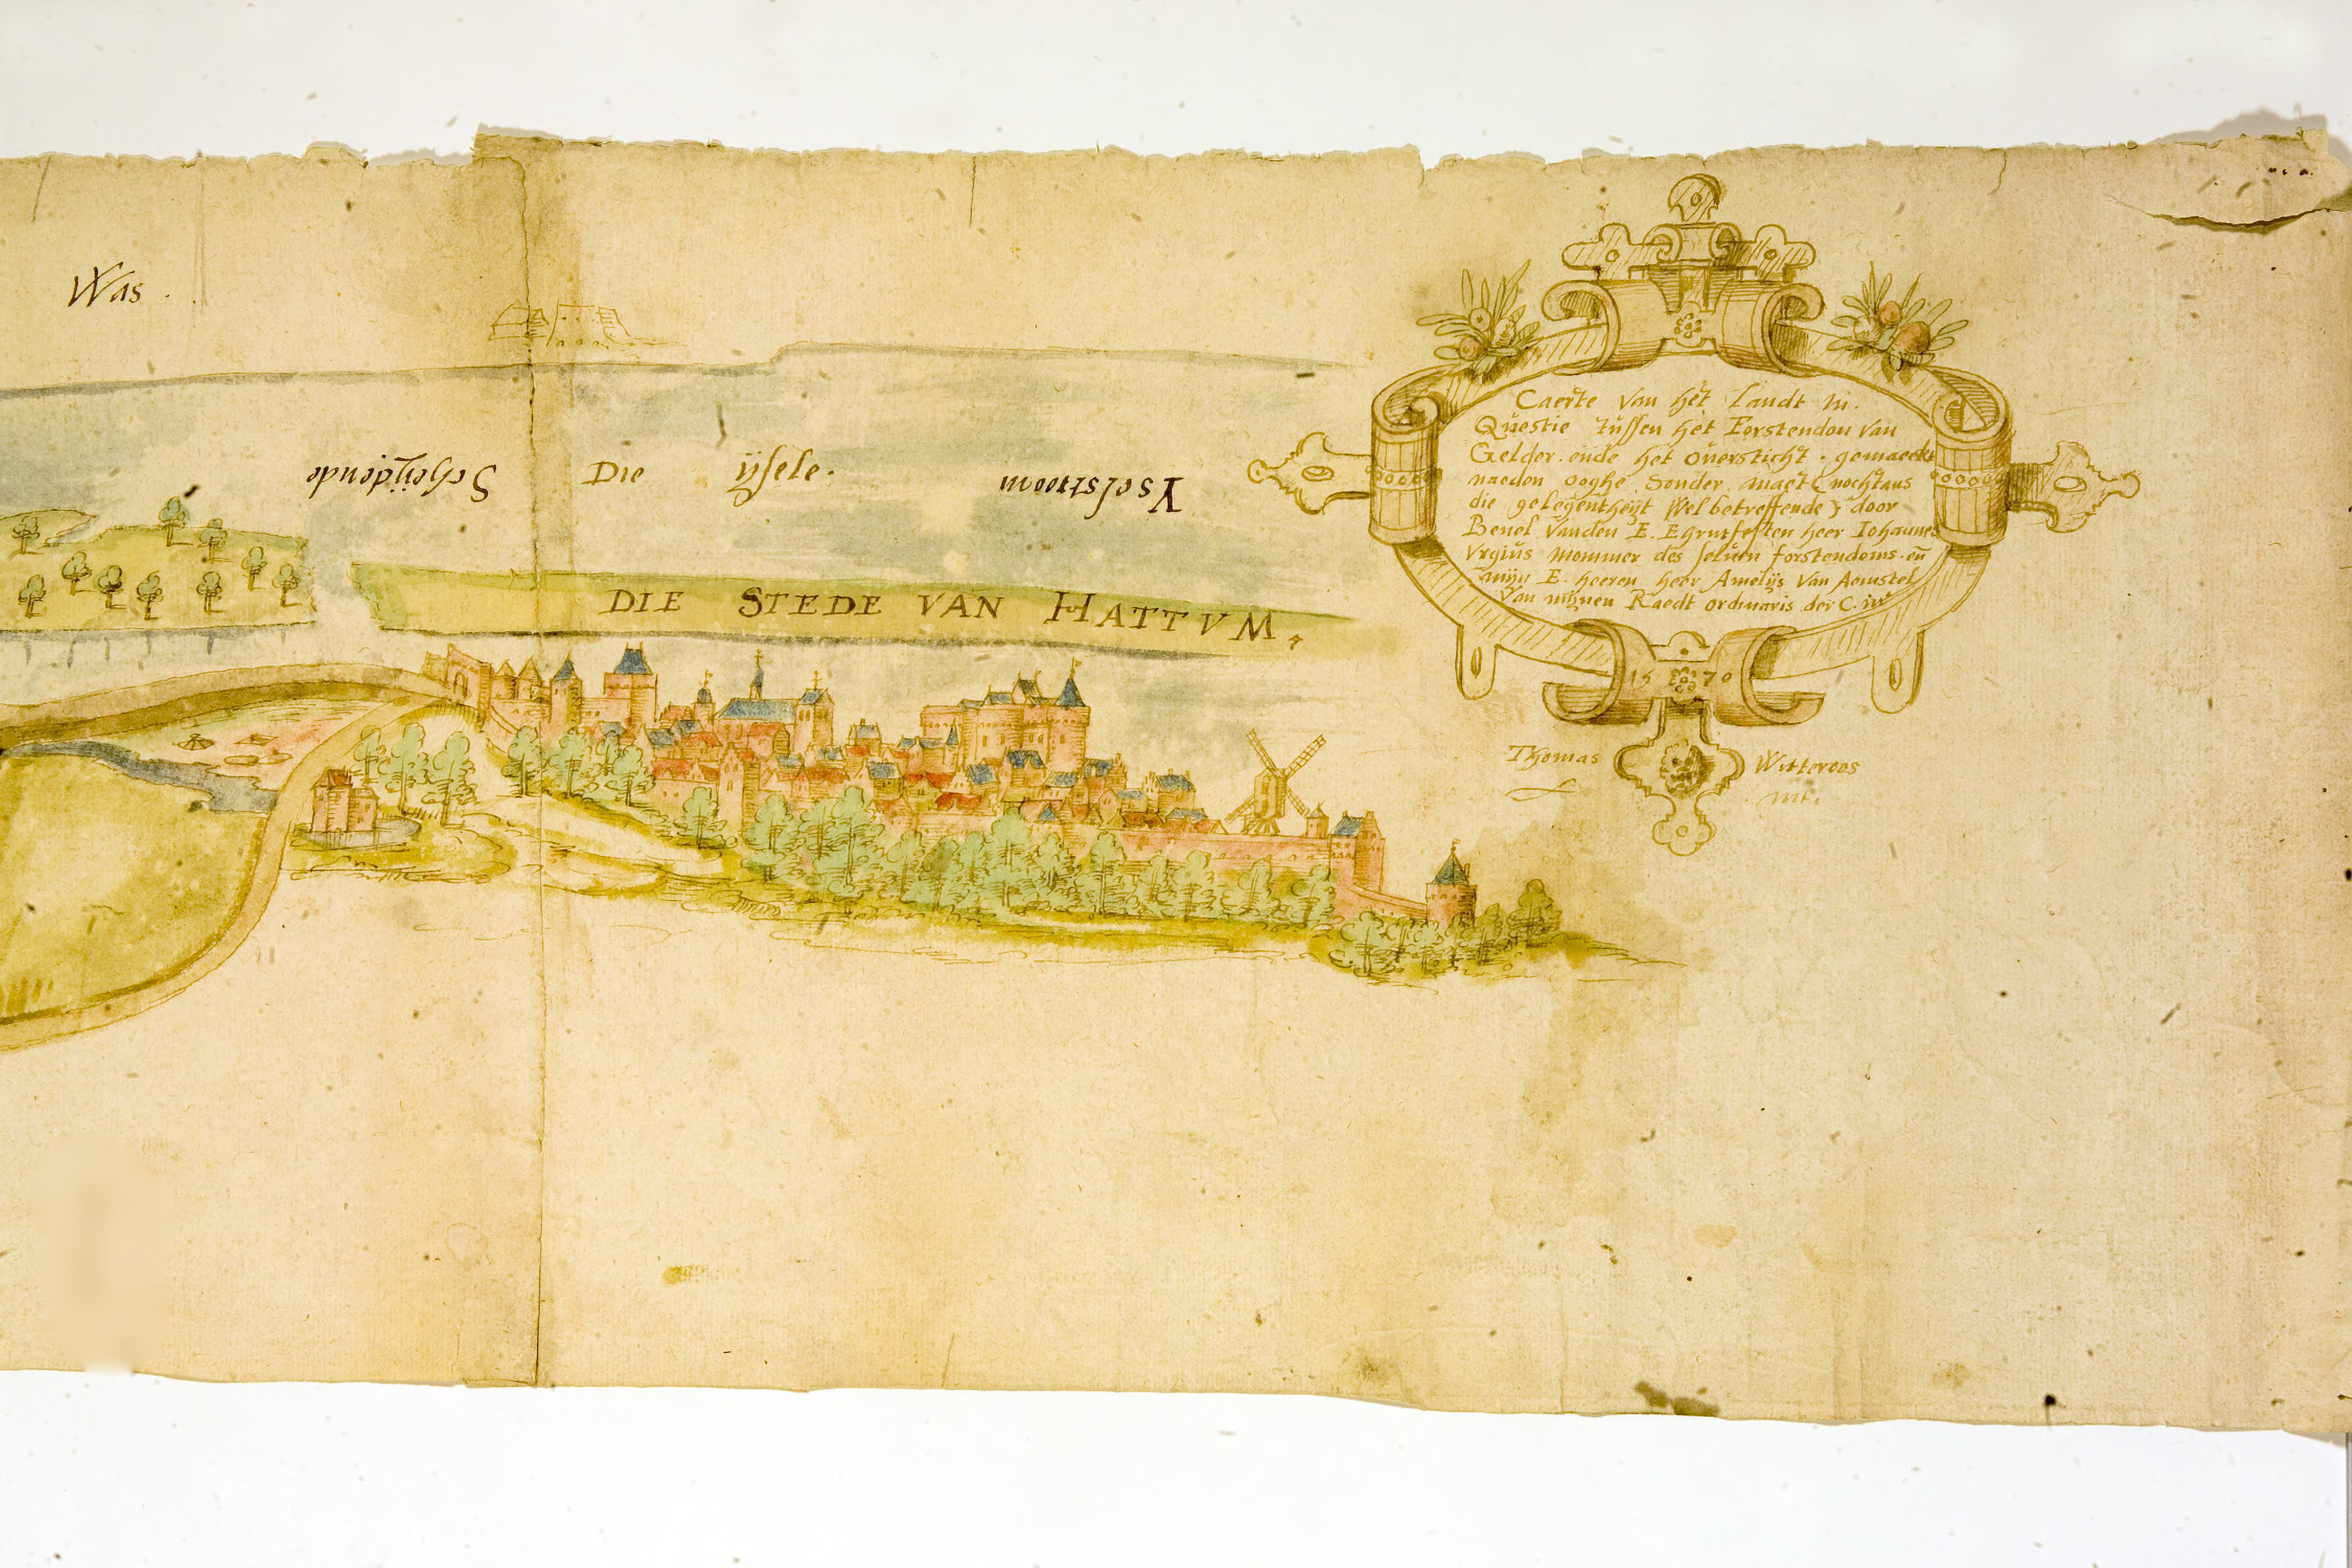 Was.
Scheijdende
Die ijsele.
Yselstroom
DIE STEDE VAN HATTVM,
Caerte van het Landt in.
Questie tussen het Forstendon van
Gelder. ende het oversticht. gemaeckt
naeden ooghe Sonder maet (nochtans
die gelegentheijt Wel betreffende) door
Benel Vanden E. heer Iohannes
mommer des selven forstendoms. en
mijn E. heeren heer Amelijs Van Aemstel
Van mijnen Raedt ordinaris der C.
1570
Thomas Witteroos